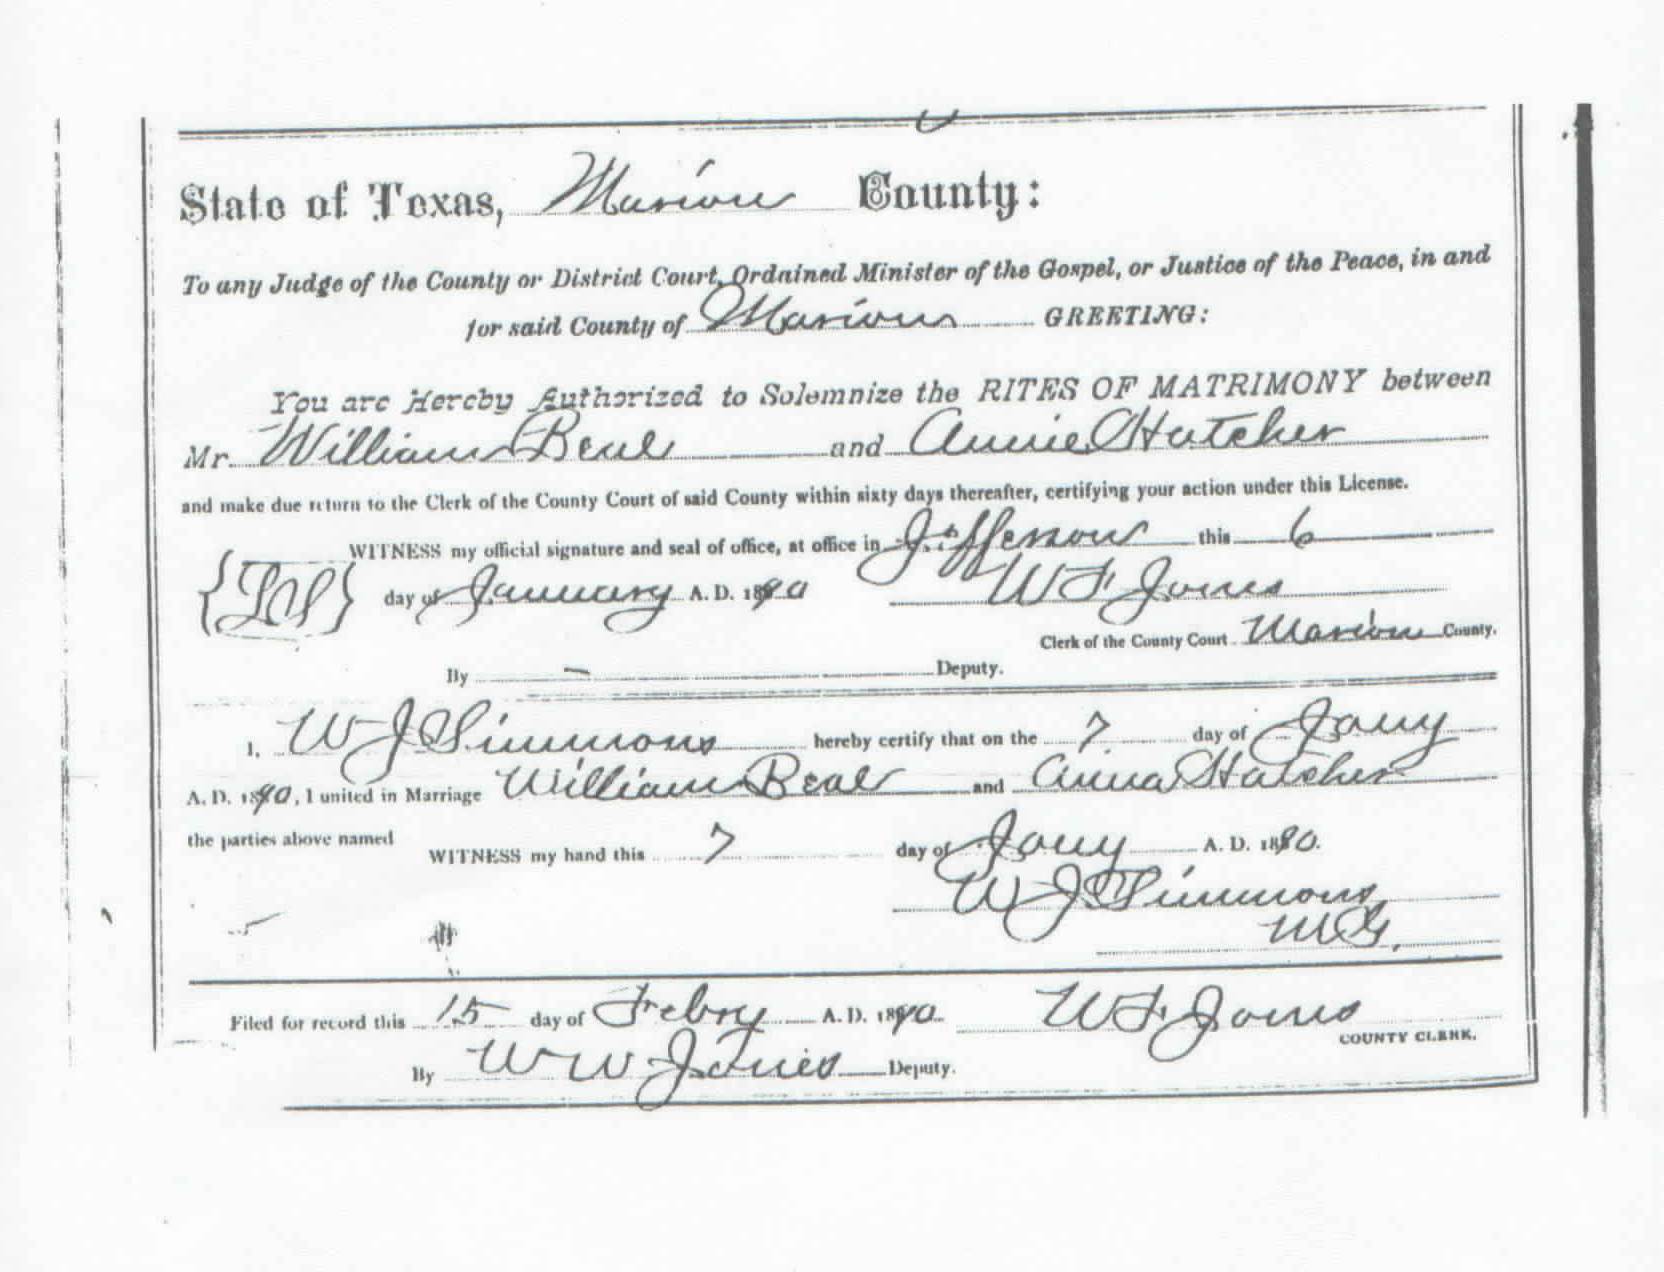 State of Texas, Marion County:
To any Judge of the County or District Court, Ordained Minister of the Gospel, or Justice of the Peace, in and
for said County of Marion GREETING:
You are Hereby Authorized to Solemnize the RITES OF MATRIMONY between
Mr. William Beal and Annie Hatcher
and make due return to the Clerk of the County Court of said County within sixty days thereafter, certifying your action under this License.
WITNESS my official signature and seal of office, at office in Jefferson this 6
{LS} day of January A. D. 1890 W F Jones
Clerk of the County Court Marion County.
By - Deputy.
I, W J Simmons hereby certify that on the 7 day of Jany
A. D. 1890, I united in Marriage William Beal and Anna Hatcher
the parties above named
WITNESS my hand this 7 day of Jany A. D. 1890.
W J Simmons
M G.
Filed for record this 15 day of Febry A. D. 1890 W F Jones
COUNTY CLERK.
By W W Jones Deputy.